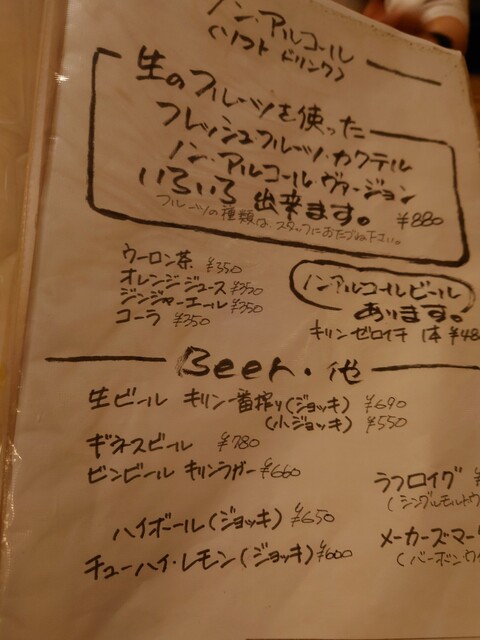 ノン・アルコール
(ソフトドリンク)
生のフルーツを使った
フレッシュフルーツ・カクテル
ノン・アルコールヴァージョン
いろいろ出来ます。 ¥880
フルーツの種類は、スタッフにおたづね下さい。
ウーロン茶 ¥350
オレンジジュース ¥350
ジンジャーエール ¥350
コーラ ¥350
ノンアルコールビール
あります。
キリンゼロイチ 1本 ¥48
Beer・他
生ビール キリン一番搾り(ジョッキ) ¥690
(小ジョッキ) ¥550
ギネスビール ¥780
ビンビール キリンラガー ¥660
ラフロイグ ¥
(シングルモルトウ
ハイボール(ジョッキ) ¥650
メーカーズマー
(バーボン・ウイ
チューハイ・レモン(ジョッキ) ¥600